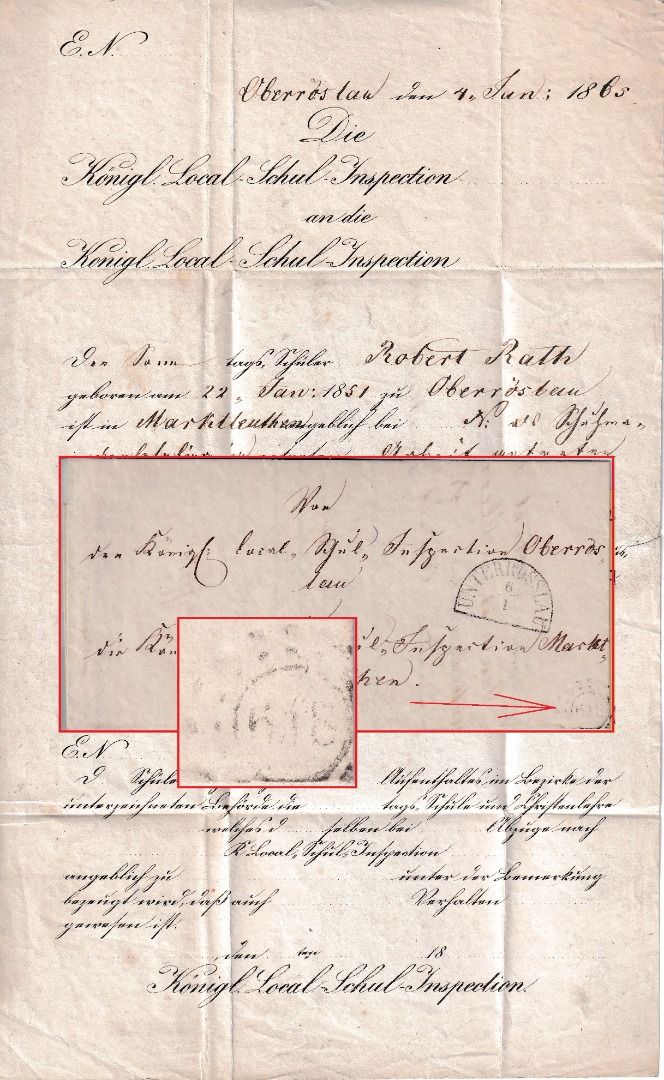 E. N.
Oberröslau den 4. Jan: 1865
Die
Königl. Local-Schul-Inspection
an die
Königl. Local-Schul-Inspection
Der Sonn tags Schüler Robert Rath
geboren am 22. Jan: 1851 zu Oberröslau
ist in Marktleuthen angeblich bei als Schuhma-
Arbeit getreten
Von
der Königl: Local-Schul-Inspection Oberrös
lau
UNTERRÖSLAU
6
1
die Kön ul-Inspection Markt-
hen.
E. N.
D Schüle Aufenthaltes im Bezirke der
unterzeichneten Behörde die tags Schule und Christenlehre
welches d selben bei Abzuge nach
K. Local-Schul-Inspection
angeblich zu unter der Bemerkung
bezeugt wird, daß auch Verhalten
gewesen ist.
den ten 18
Königl. Local-Schul-Inspection